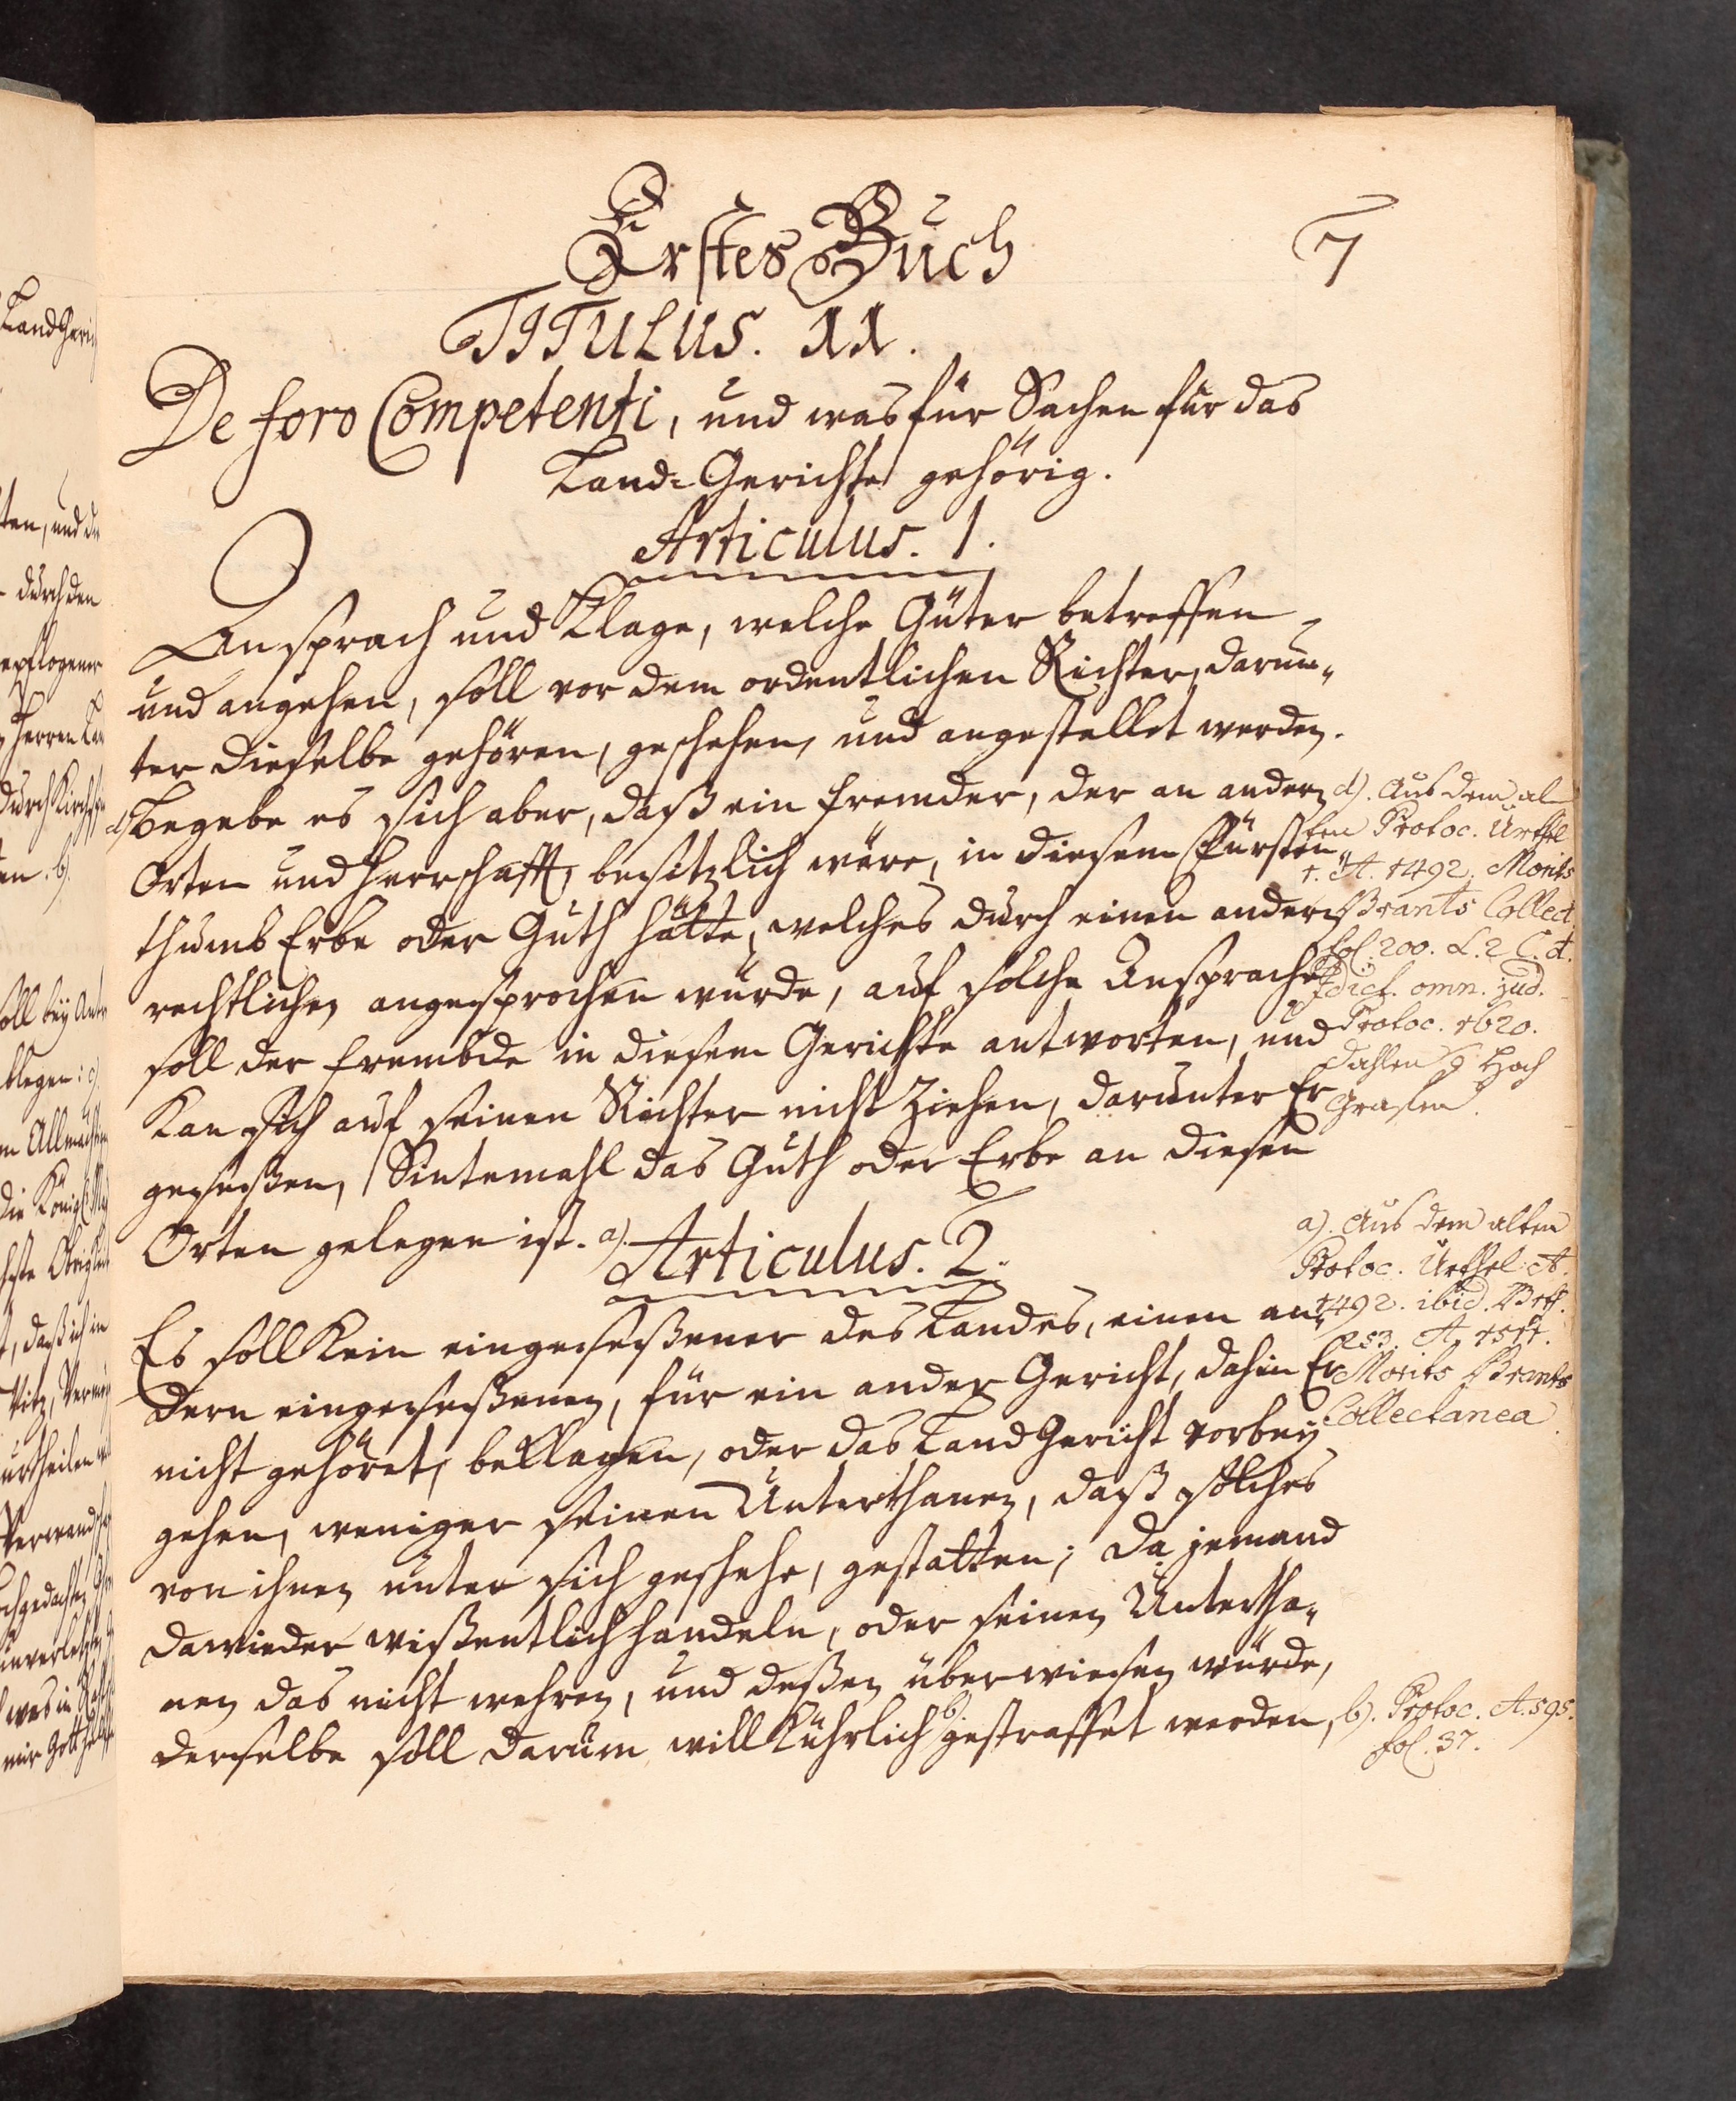 7
Erstes Buch
TITULUS. II.
De foro Competenti, und was für Sachen für das
Land-Gerichte gehörig.
Articulus. 1.
Ansprach und Klage, welche Güter betreffen
und angehen, soll vor dem ordentlichen Richter, darun„
ter dieselbe gehören, geschehen, und angestellet werden.
d) Begebe es sich aber, daß ein fremder, der an andern
Orten und Herrschafft, besitzlich wäre, in diesem Fürsten„
thumb Erbe oder Guth hätte, welches durch einen andern
rechtlichen angesprochen würde, auf solche Ansprache
soll der frembde in diesem Gerichte antworten, und
Kan sich auf seinen Richter nicht Ziehen, darunter Er
geseßen, Sintemahl das Guth oder Erbe an diesen
Orten gelegen ist. a).
Articulus. 2.
Es soll Kein eingeseßener des Landes, einen an„
dern eingeseßenen, für ein ander Gericht, dahin Er
nicht gehöret, beklagen, oder das Land Gericht vorbey
gehen, weniger seinen Unterthanen, daß solches
von ihnen unter sich geschehe, gestatten; Da jemand
dawieder wißentlich handeln, oder seinen Untertha„
nen das nicht wehren, und deßen überwiesen würde,
derselbe soll darum willkührlich b) gestraffet werden,
d). Aus dem al
ten Protoc. Urthel
1. A. 1492. Morits
Brants Collect.
fol. 200. L. 2 C. 1.
omn. jud.
Protoc. 1620.
Dahlen Hoch
Grafen.
a). Aus dem alten
Protoc. Urthel A.
1492. ibid.
253. A.
Morits Brants
Collectanea.
b). Protoc. A. 595.
fol. 37.